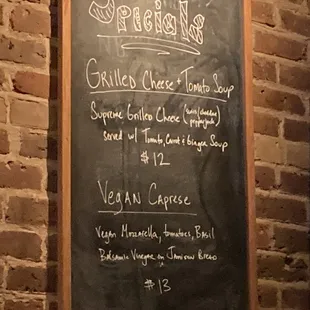 Specials
Grilled Cheese + Tomato Soup
Supreme Grilled Cheese (swiss/cheddar
pepperjack)
served w/ Tomato, Carrot + Ginger Soup
$12
Vegan Caprese
Vegan Mozzarella, tomatoes, Basil
Balsamic Vinegar on Bread
$13